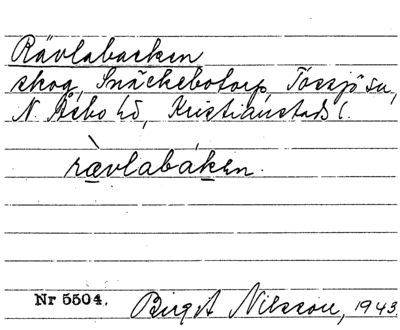 Rävlabacken
skog, Snäckebotorp, Tåssjö sn,
N. Åsbo hd, Kristianstads l.
rävlabáken.
Nr 5504.
Birgit Nilsson, 1943.